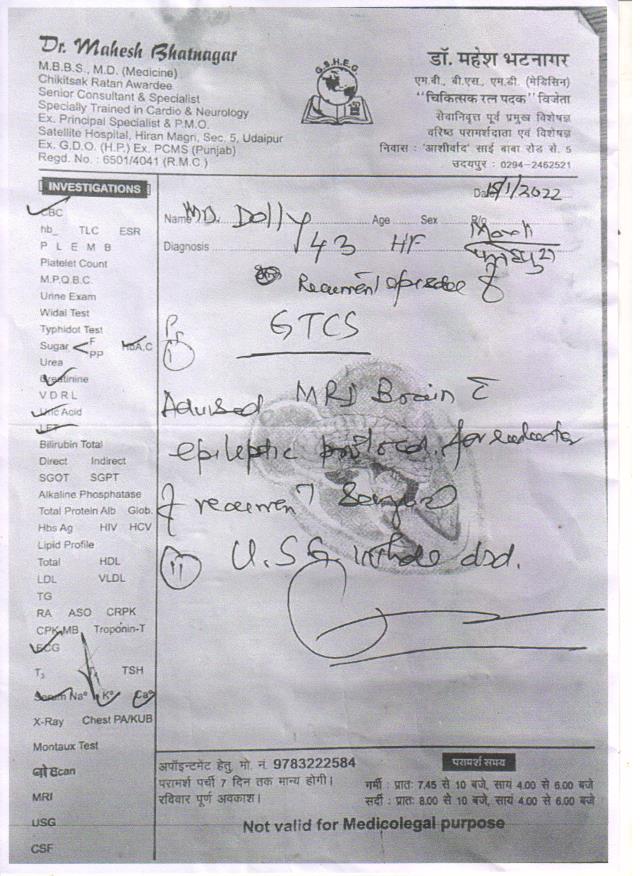 Dr. Mahesh Bhatnagar
M.B.B.S., M.D. (Medicine)
Chikitsak Ratan Awardee
Senior Consultant & Specialist
Specially Trained in Cardio & Neurology
Ex. Principal Specialist & P.M.O.
Satellite Hospital, Hiran Magri, Sec. 5, Udaipur
Ex. G.D.O. (H.P.) Ex. PCMS (Punjab)
Regd. No. : 6501/4041 (R.M.C.)
G.S.H.E.G
डॉ. महेश भटनागर
एम.बी., बी.एस., एम.डी. (मेडिसिन)
"चिकित्सक रत्न पदक" विजेता
सेवानिवृत्त पूर्व प्रमुख विशेषज्ञ
वरिष्ठ परामर्शदाता एवं विशेषज्ञ
निवास : 'आशीर्वाद' साई बाबा रोड से. 5
उदयपुर : 0294-2462521
INVESTIGATIONS
CBC
hb_ TLC ESR
P L E M B
Platelet Count
M.P.Q.B.C.
Urine Exam
Widal Test
Typhidot Test
Sugar F PP HbA,C
Urea
Creatinine
V D R L
Uric Acid
LFT
Bilirubin Total
Direct Indirect
SGOT SGPT
Alkaline Phosphatase
Total Protein Alb Glob.
Hbs Ag HIV HCV
Lipid Profile
Total HDL
LDL VLDL
TG
RA ASO CRPK
CPK-MB Troponin-T
ECG
T3 T4 TSH
Serum Na° K° Ca°
X-Ray Chest PA/KUB
Montaux Test
Scan
MRI
USG
CSF
Date 15/1/2022
Name MD. Dolly Age Sex R/o
Diagnosis 43 HF
Recurrent episode of
GTCS
Advised MRI Brain c
epileptic protocol for
of recurrent
(ii) U.S.G. whole abd.
अपॉइन्टमेंट हेतु, मो. नं. 9783222584
परामर्श पर्ची 7 दिन तक मान्य होगी।
रविवार पूर्ण अवकाश।
परामर्श समय
गर्मी : प्रातः 7.45 से 10 बजे, सायं 4.00 से 6.00 बजे
सर्दी : प्रातः 8.00 से 10 बजे, सायं 4.00 से 6.00 बजे
Not valid for Medicolegal purpose